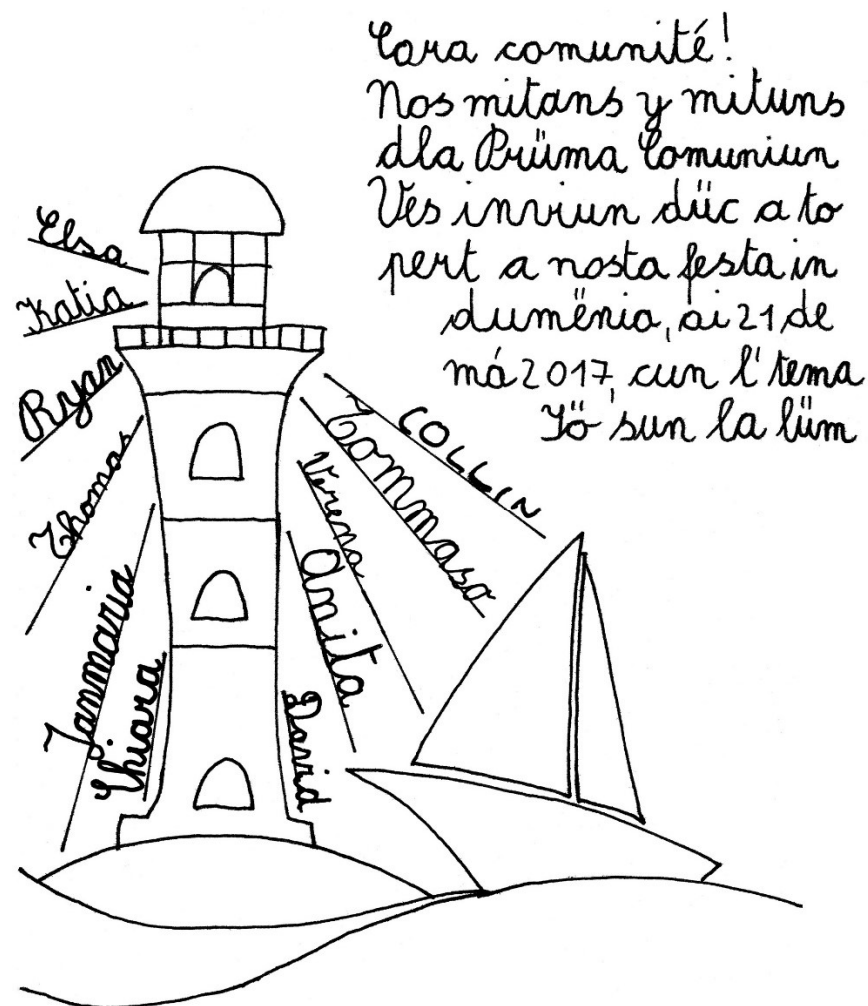 Cara comunité!
Nos mitans y mituns
dla Prüma Comuniun
Ves inviun düc a to
pert a nosta festa in
dumënia, ai 21 de
má 2017, cun l' tema
Iö sun la lüm
Elsa
Katia
Ryan
Thomas
Janmaria
Chiara
COLLIN
Tommaso
Verena
Anita
David